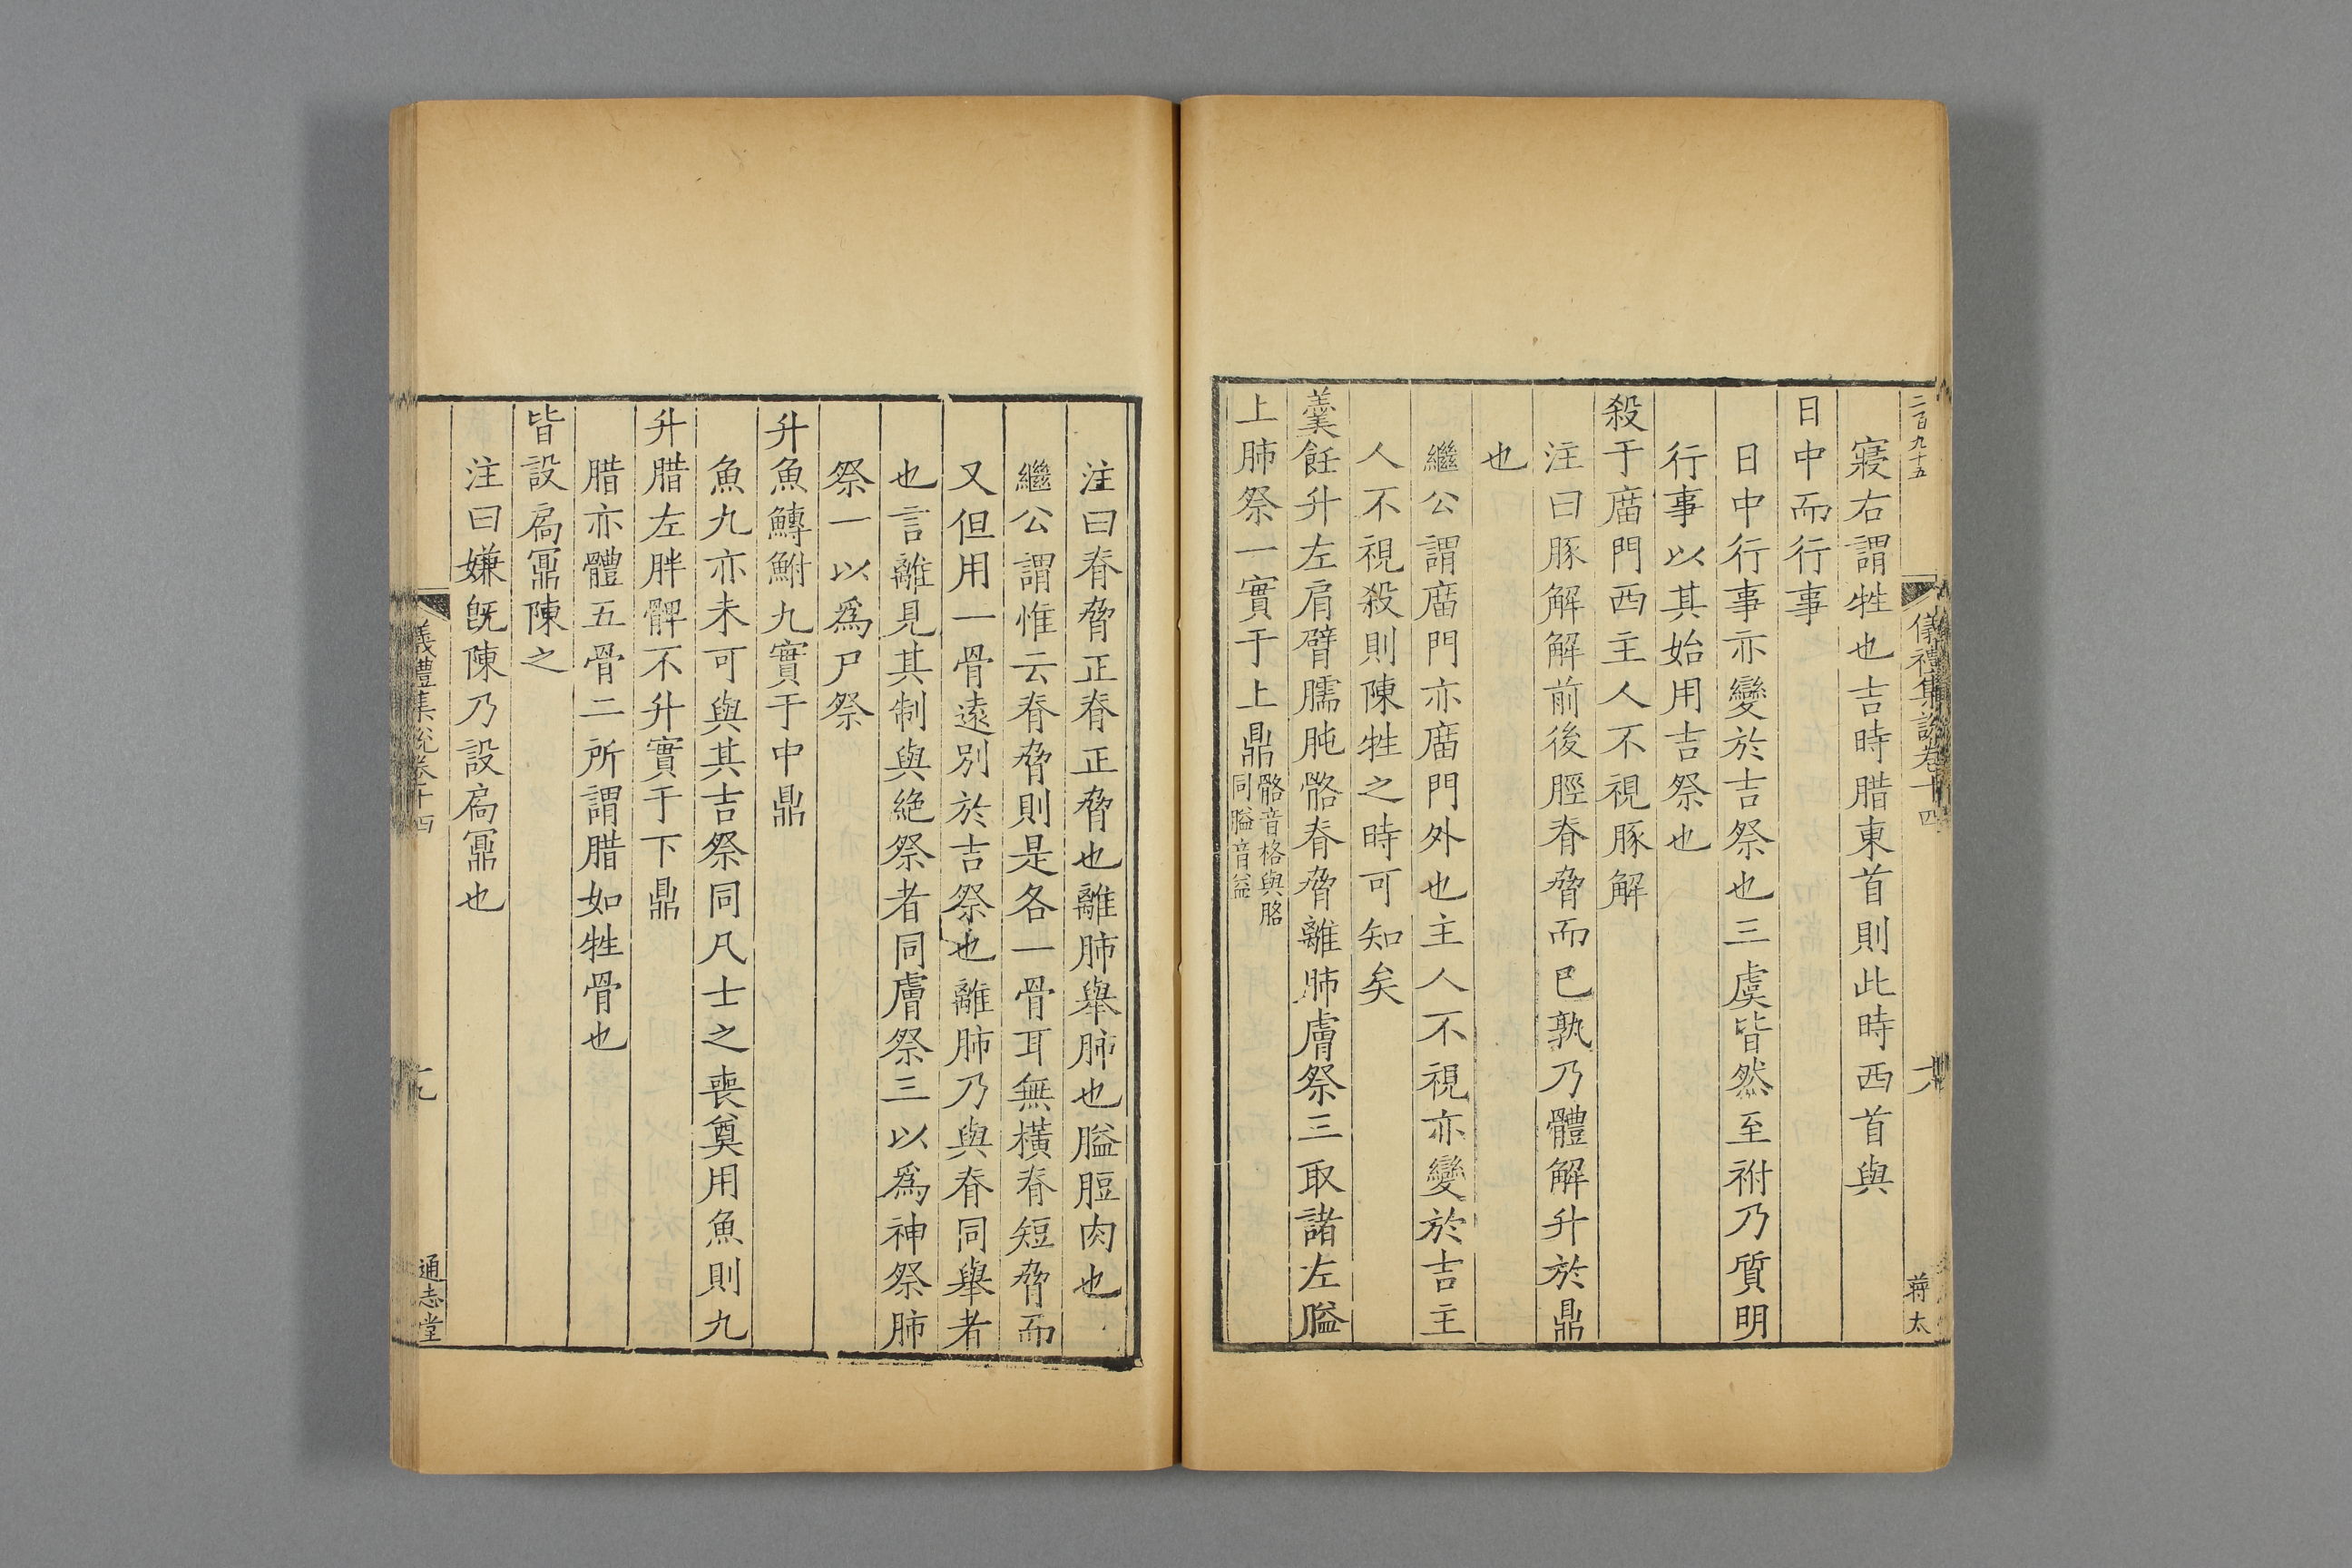 二百九十五
儀禮集說卷十四
蔣太
寢右謂牲也吉時腊東首則此時西首與
日中而行事
日中行事亦變於吉祭也三虞皆然至祔乃質明
行事以其始用吉祭也
殺于庿門西主人不視豚解
注曰豚解解前後脛脊脅而巳孰乃體解升於鼎
也
繼公謂庿門亦庿門外也主人不視亦變於吉主
人不視殺則陳牲之時可知矣
羹飪升左肩臂臑肫骼脊脅離肺膚祭三取諸左膉
上肺祭一實于上鼎骼音格與胳
同膉音益
注曰脊脅正脊正脅也離肺舉肺也膉脰肉也
繼公謂惟云脊脅則是各一骨耳無橫脊短脅而
又但用一骨遠別於吉祭也離肺乃與脊同舉者
也言離見其制與絶祭者同膚祭三以爲神祭肺
祭一以爲尸祭
升魚鱄鮒九實于中鼎
魚九亦未可與其吉祭同凡士之喪奠用魚則九
升腊左胖髀不升實于下鼎
腊亦體五骨二所謂腊如牲骨也
皆設扃鼏陳之
注曰嫌旣陳乃設扃鼏也
儀禮集說卷十四
通志堂